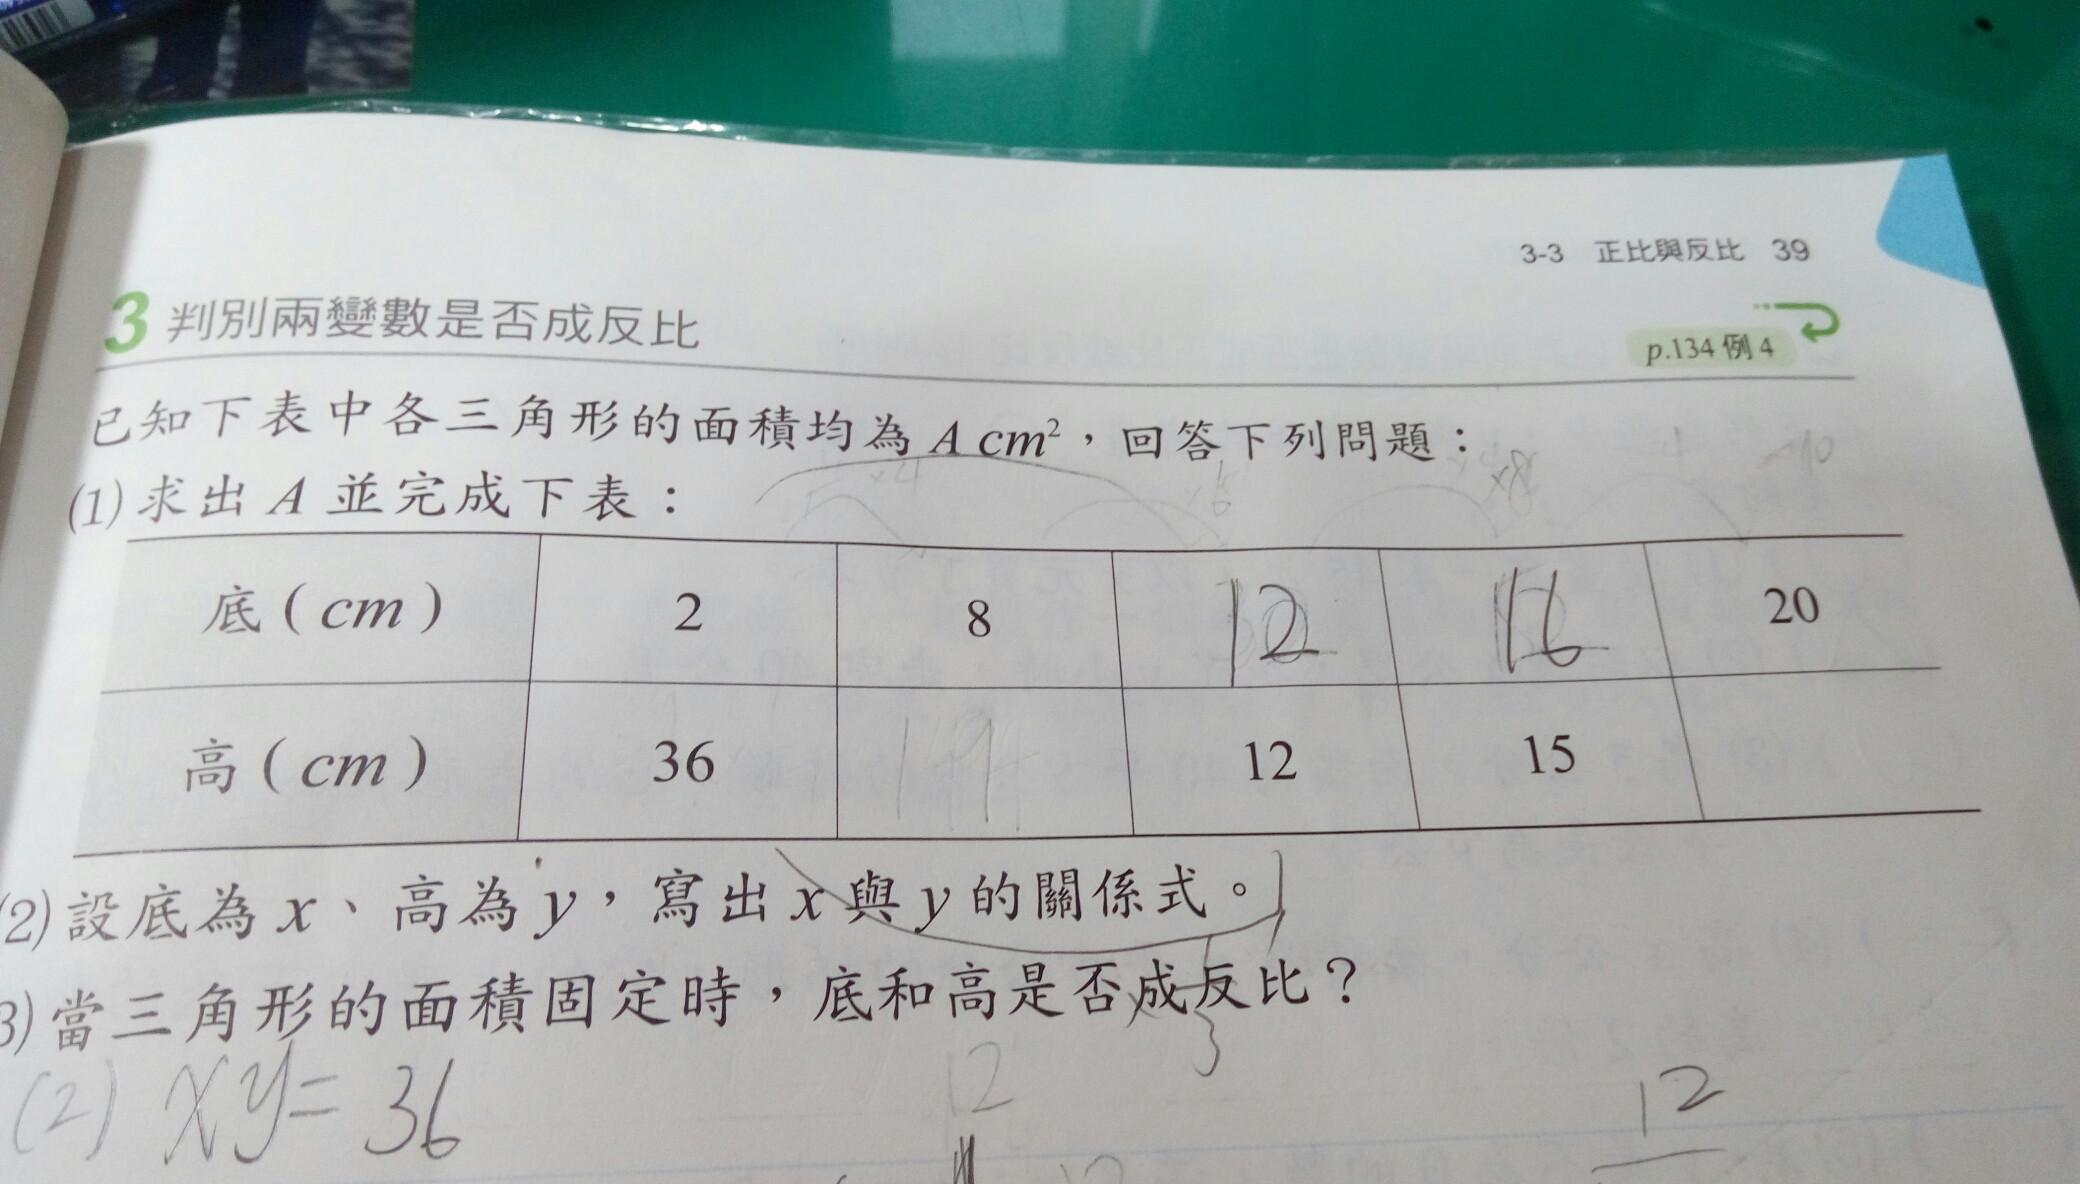 3-3 正比與反比 39
3 判別兩變數是否成反比
p.134 例 4
已知下表中各三角形的面積均為 A cm²，回答下列問題：
(1) 求出 A 並完成下表：
底 ( cm ) 2 8 12 16 20
高 ( cm ) 36 9 12 15
(2) 設底為 x、高為 y，寫出 x 與 y 的關係式。
3) 當三角形的面積固定時，底和高是否成反比？
(2) xy = 36
12
12